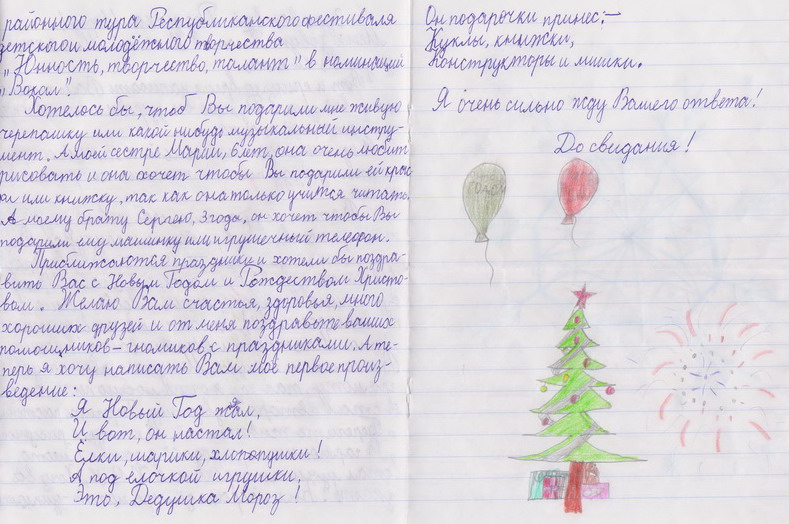 районного тура Республиканского фестиваля
детского и молодёжного творчества
„Юность, творчество, талант" в номинации
„Вокал".
Хотелось бы, чтоб Вы подарили мне живую
черепашку или какой нибудь музыкальный инстру-
мент. А моей сестре Марии, 6 лет, она очень любит
рисовать и она хочет чтобы Вы подарили ей крас
ки или книжку, так как она только учится читать.
А моему брату Сергею, 3 года, он хочет чтобы Вы
подарили ему машинку или игрушечный телефон.
Приближаются праздники и хотели бы поздра-
вить Вас с Новым Годом и Рождеством Христо-
вом. Желаю Вам счастья, здоровья, много
хороших друзей и от меня поздравьте ваших
помощников – гномиков с праздниками. А те-
перь я хочу написать Вам моё первое произ-
ведение:
Я Новый Год ждал,
И вот, он настал!
Ёлки, шарики, хлопопушки!
А под елочкой игрушки.
Это, Дедушка Мороз!
Он подарочки принес:–
Куклы, книжки,
Конструкторы и мишки.
Я очень сильно жду Вашего ответа!
До свидания!